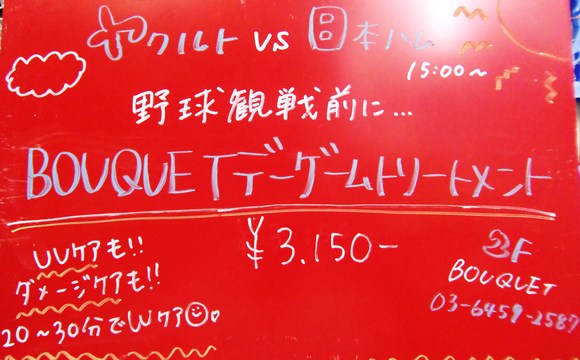 ヤクルト VS 日本ハム
15:00〜
野球観戦前に...
BOUQUET デーゲームトリートメント
¥3.150-
UVケアも!!
ダメージケアも!!
20〜30分でWケア
2F
BOUQUET
03-6459-2587